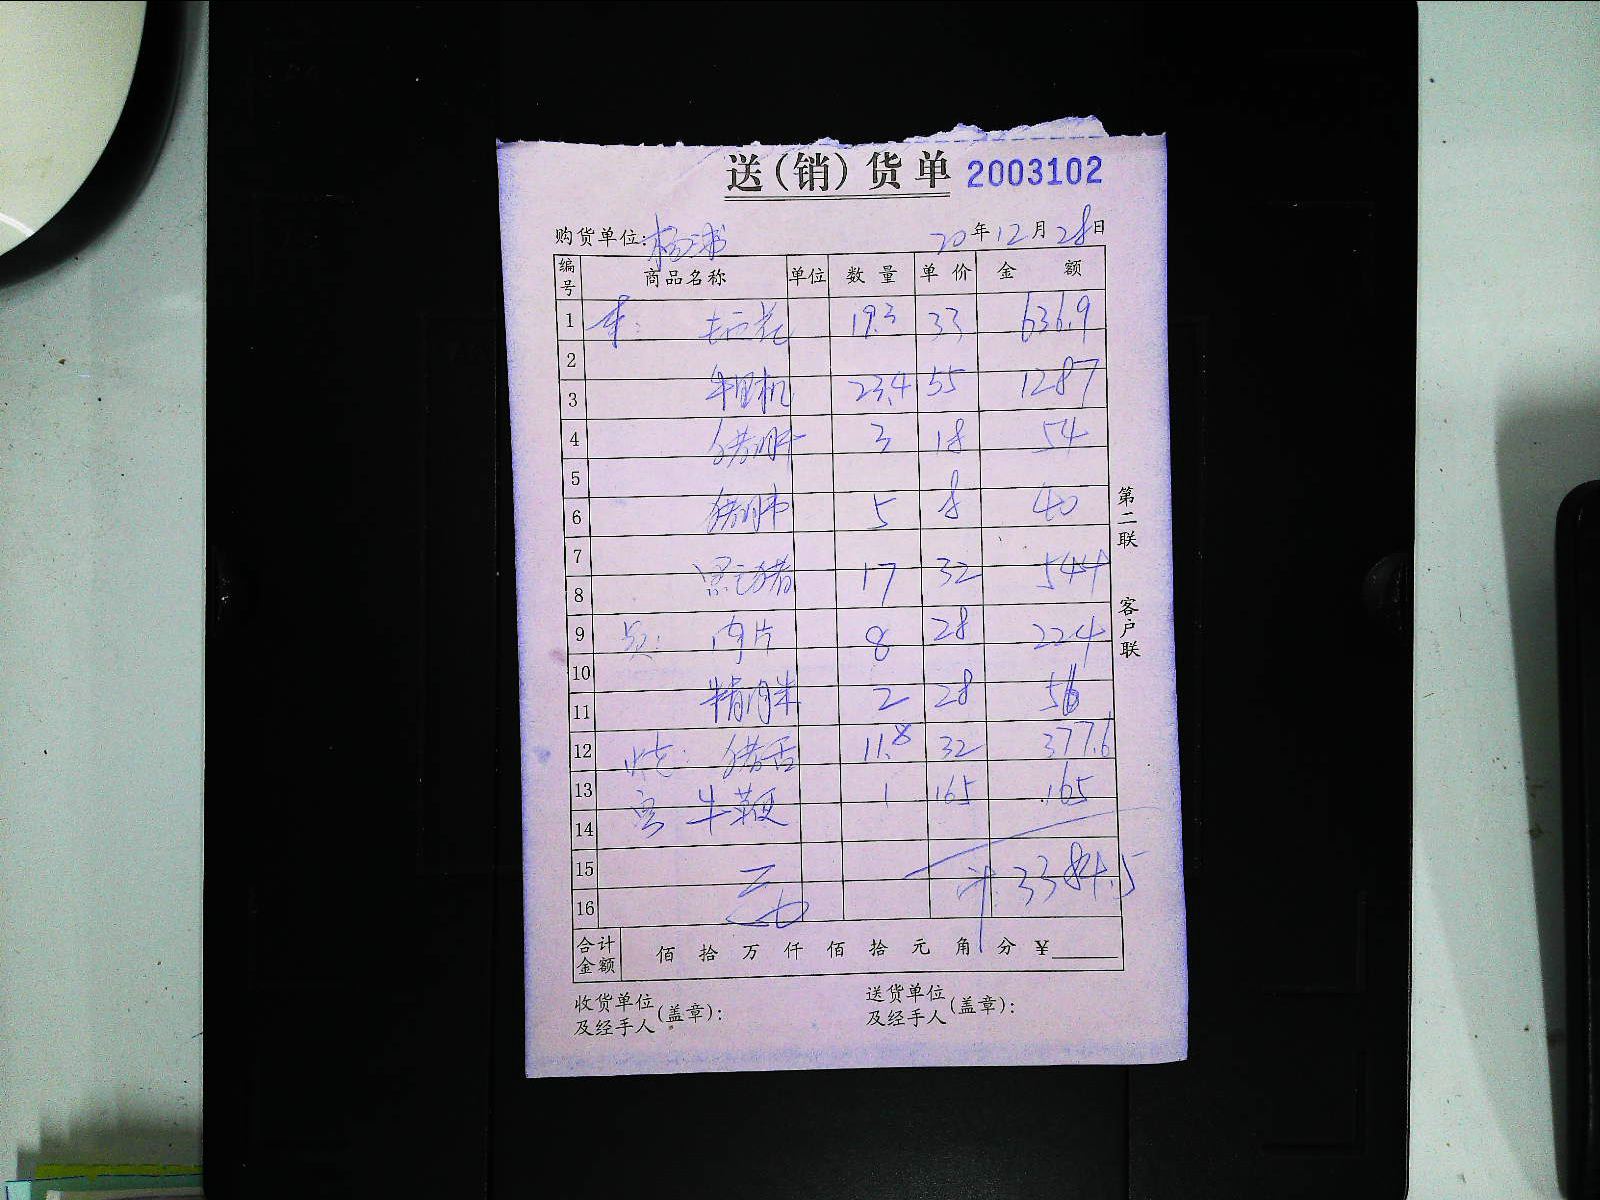 送(销)货单 2003102
购货单位: 20年12月28日
编号 商品名称 单位 数量 单价 金额
1 19.3 33 636.9
2
3 23.4 55 1287
4 猪肝 3 18 54
5
6 猪肺 5 8 40
7
8 黑毛猪 17 32 544
9 肉片 8 28 224
10
11 精肉米 2 28 56
12 烧: 猪舌 11.8 32 377.6
13 牛鞭 1 165 165
14
15
16 计: 3384.5
合计金额 佰 拾 万 仟 佰 拾 元 角 分 ¥
收货单位及经手人(盖章): 送货单位及经手人(盖章):
第二联 客户联